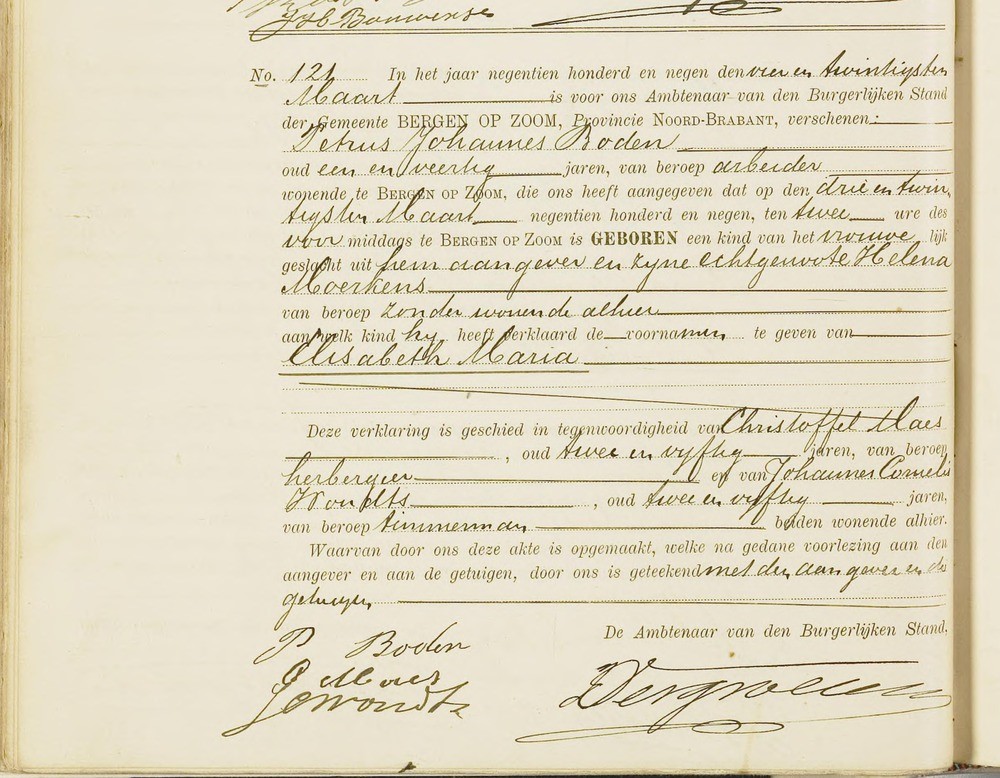 J & C Bouwense
No. 121 In het jaar negentien honderd en negen den vier en twintigsten
Maart is voor ons Ambtenaar van den Burgerlijken Stand
der Gemeente BERGEN OP ZOOM, Provincie NOORD-BRABANT, verschenen:
Petrus Johannes Boden
oud een en veertig jaren, van beroep arbeider
wonende te BERGEN OP ZOOM, die ons heeft aangegeven dat op den drie en twin
tigsten Maart negentien honderd en negen, ten twee ure des
voor middags te BERGEN OP ZOOM is GEBOREN een kind van het vrouwe lijk
geslacht uit hem aangever en zyne echtgenoote Helena
Moerkens
van beroep zonder wonende alhier
aan welk kind hy heeft verklaard de voornamen te geven van
Elisabeth Maria
Deze verklaring is geschied in tegenwoordigheid van Christoffel Maes
, oud twee en vyftig jaren, van beroep
herbergier en van Johannes Cornelis
Wondts , oud twee en vyftig jaren,
van beroep timmerman beiden wonende alhier.
Waarvan door ons deze akte is opgemaakt, welke na gedane voorlezing aan den
aangever en aan de getuigen, door ons is geteekend met den aangever en de
getuigen
De Ambtenaar van den Burgerlijken Stand,
P Boden
C Maes
JCWondts